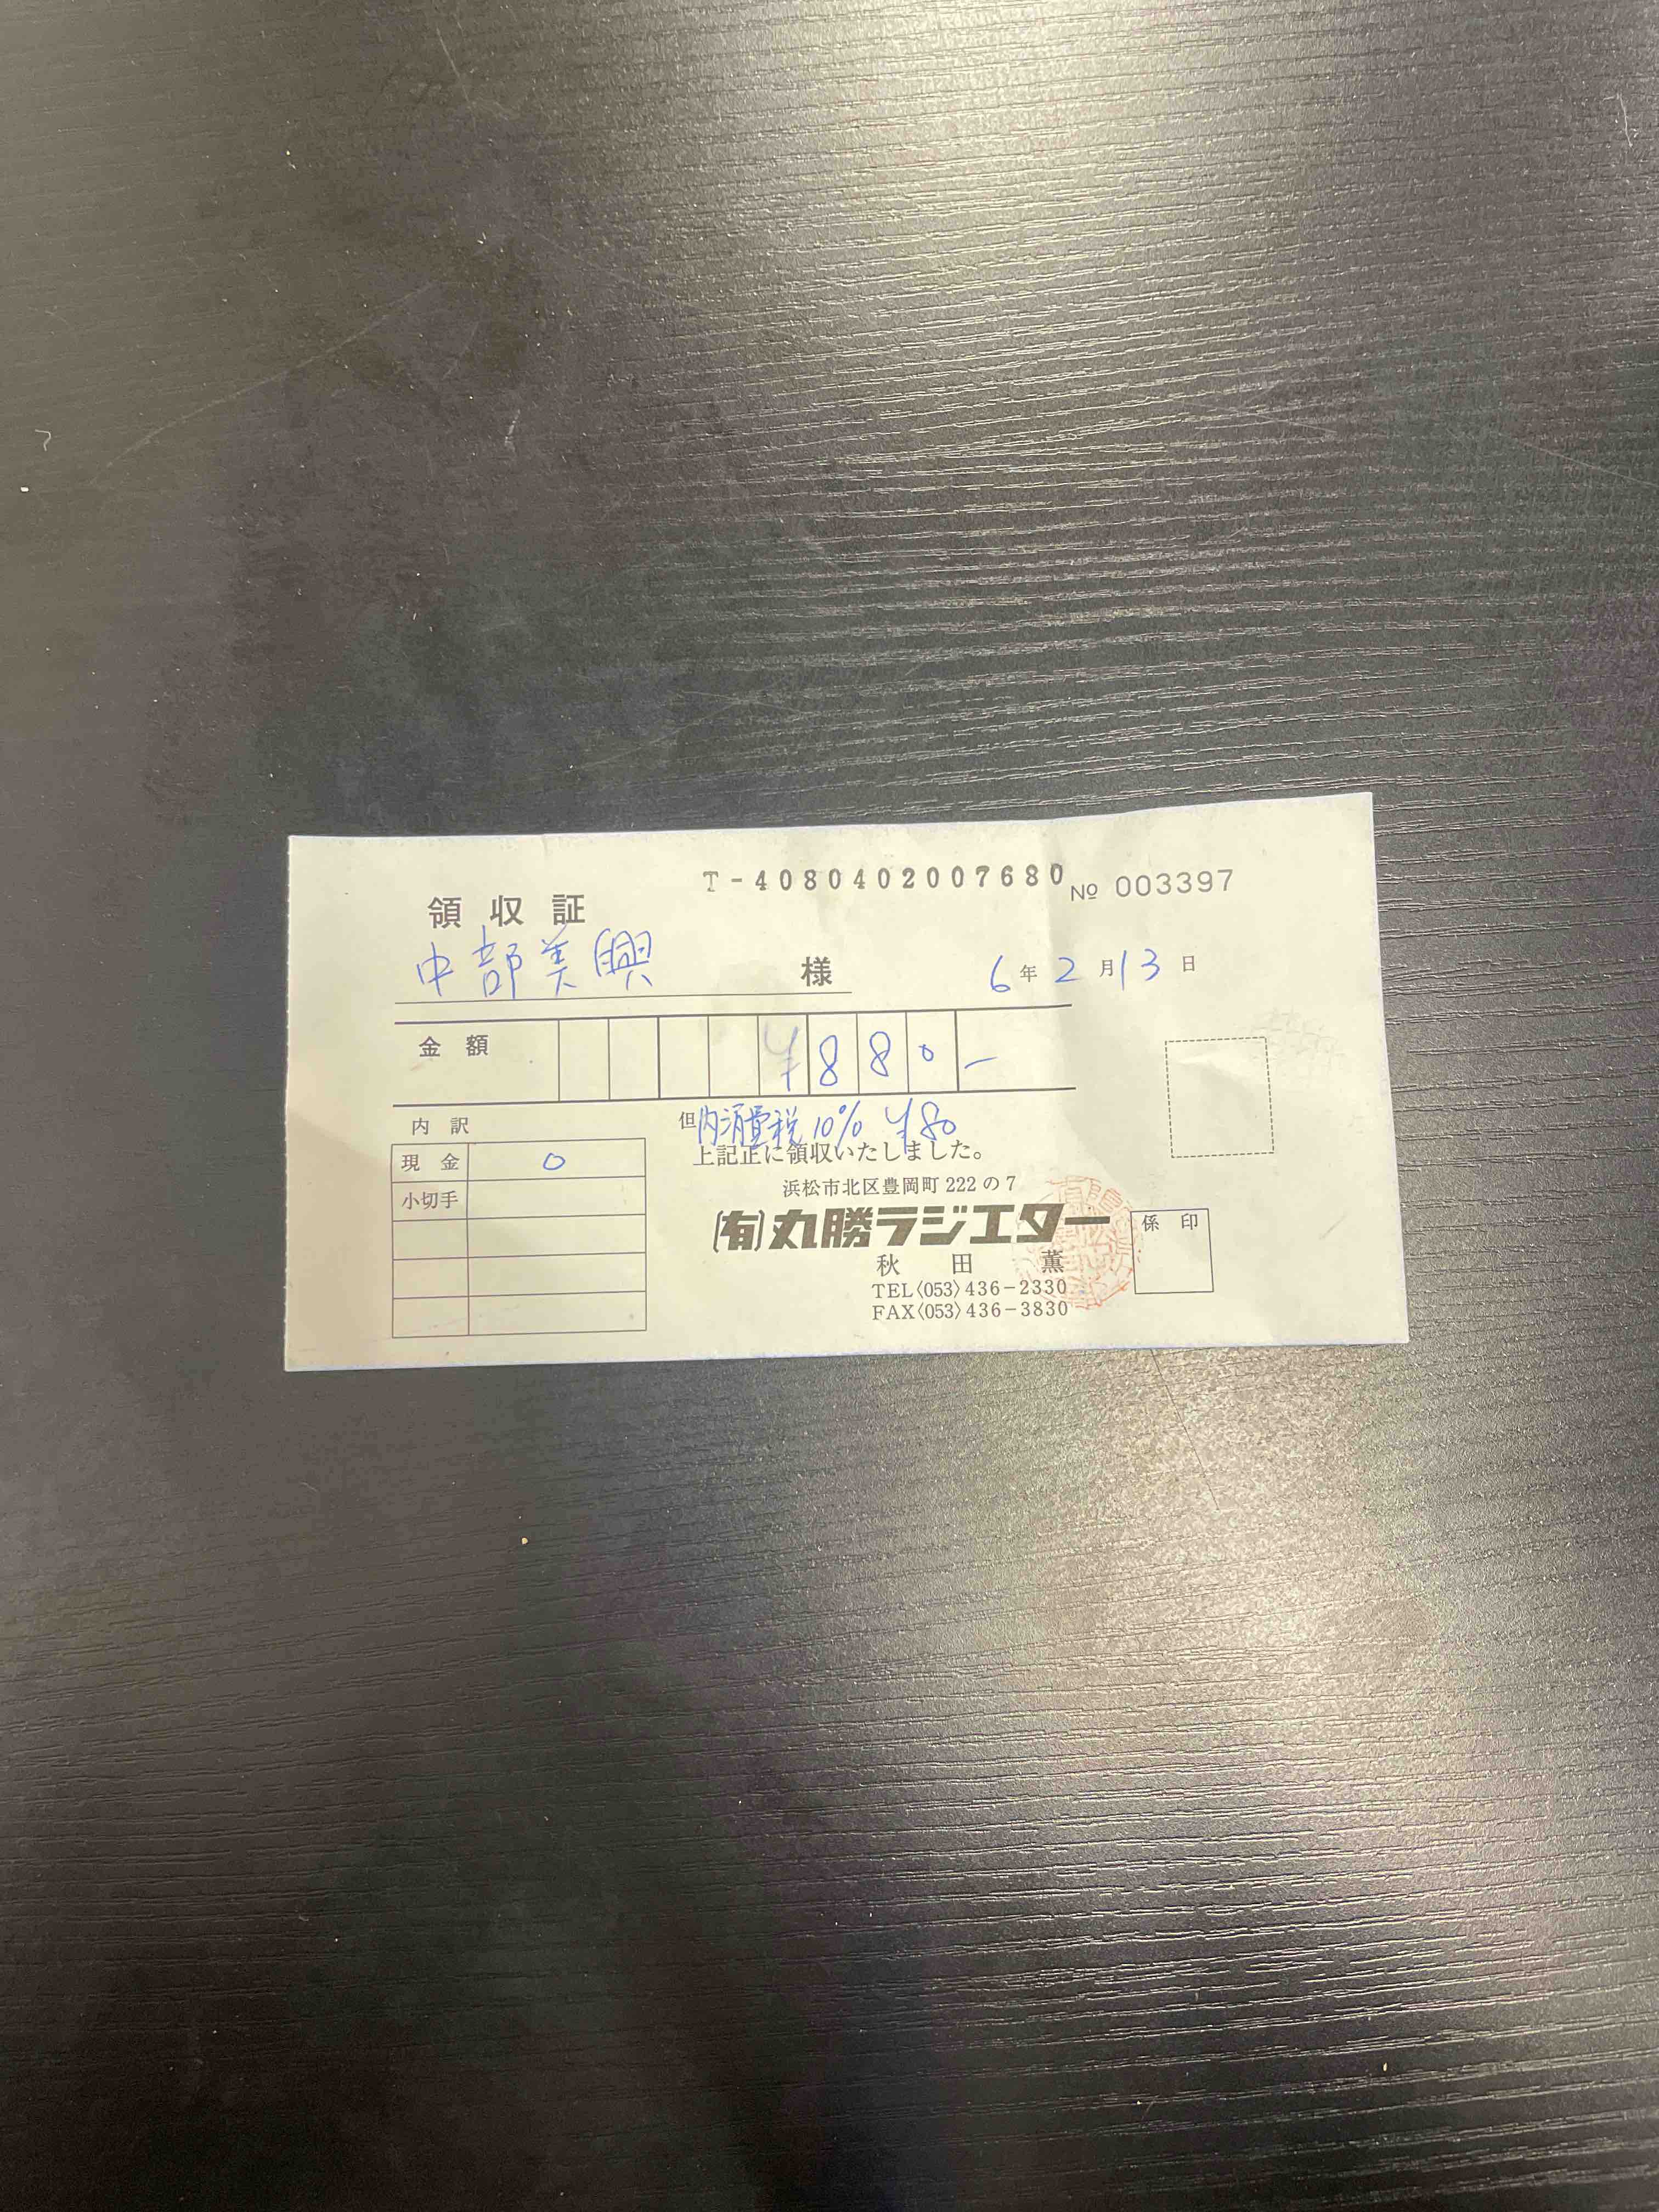 T-4080402007680
№ 003397
領収証
中部美興 様
6年2月13日
金額 ¥880-
内訳
但 内消費税10% ¥80
上記正に領収いたしました。
現金 0
小切手
浜松市北区豊岡町222の7
(有)丸勝ラジエター
秋田 薫
係印
TEL〈053〉436-2330
FAX〈053〉436-3830